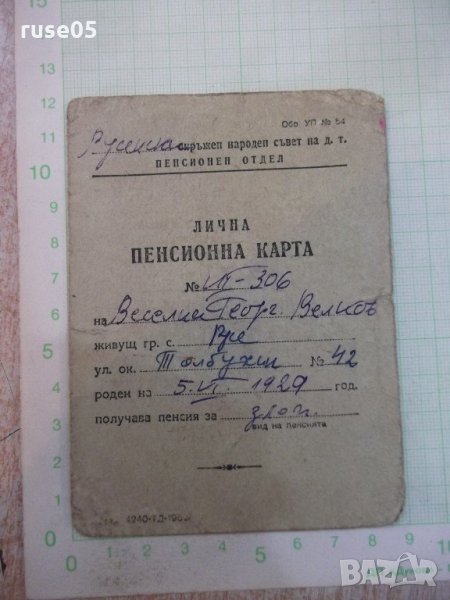 ruse05
Обр. УП № 54
Русенски окръжен народен съвет на д. т.
ПЕНСИОНЕН ОТДЕЛ
ЛИЧНА
ПЕНСИОННА КАРТА
№ VII-306
на Веселин Георг. Велков
живущ гр. с. Русе
ул. ок. Толбухин № 42
роден на 5.VI. 1929 год.
получава пенсия за злоп.
вид на пенсията
BAZAR